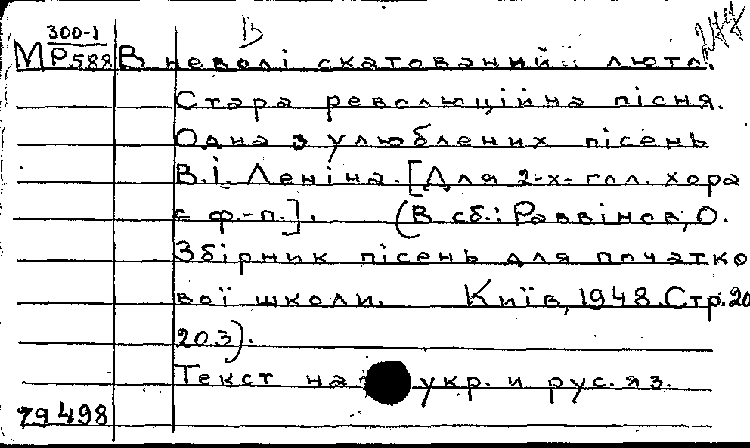 300-1 В
М Р588 В неволі скатований люто.
Стара революційна пісня.
Одна з улюблених пісень
В.І. Леніна. [Для 2-х-гол. хора
с ф.-п.]. (В сб.: Раввінов, О.
Збірник пісень для початко
вої школи. Київ, 1948. Стр. 20
203).
Текст на укр. и рус. яз.
79498